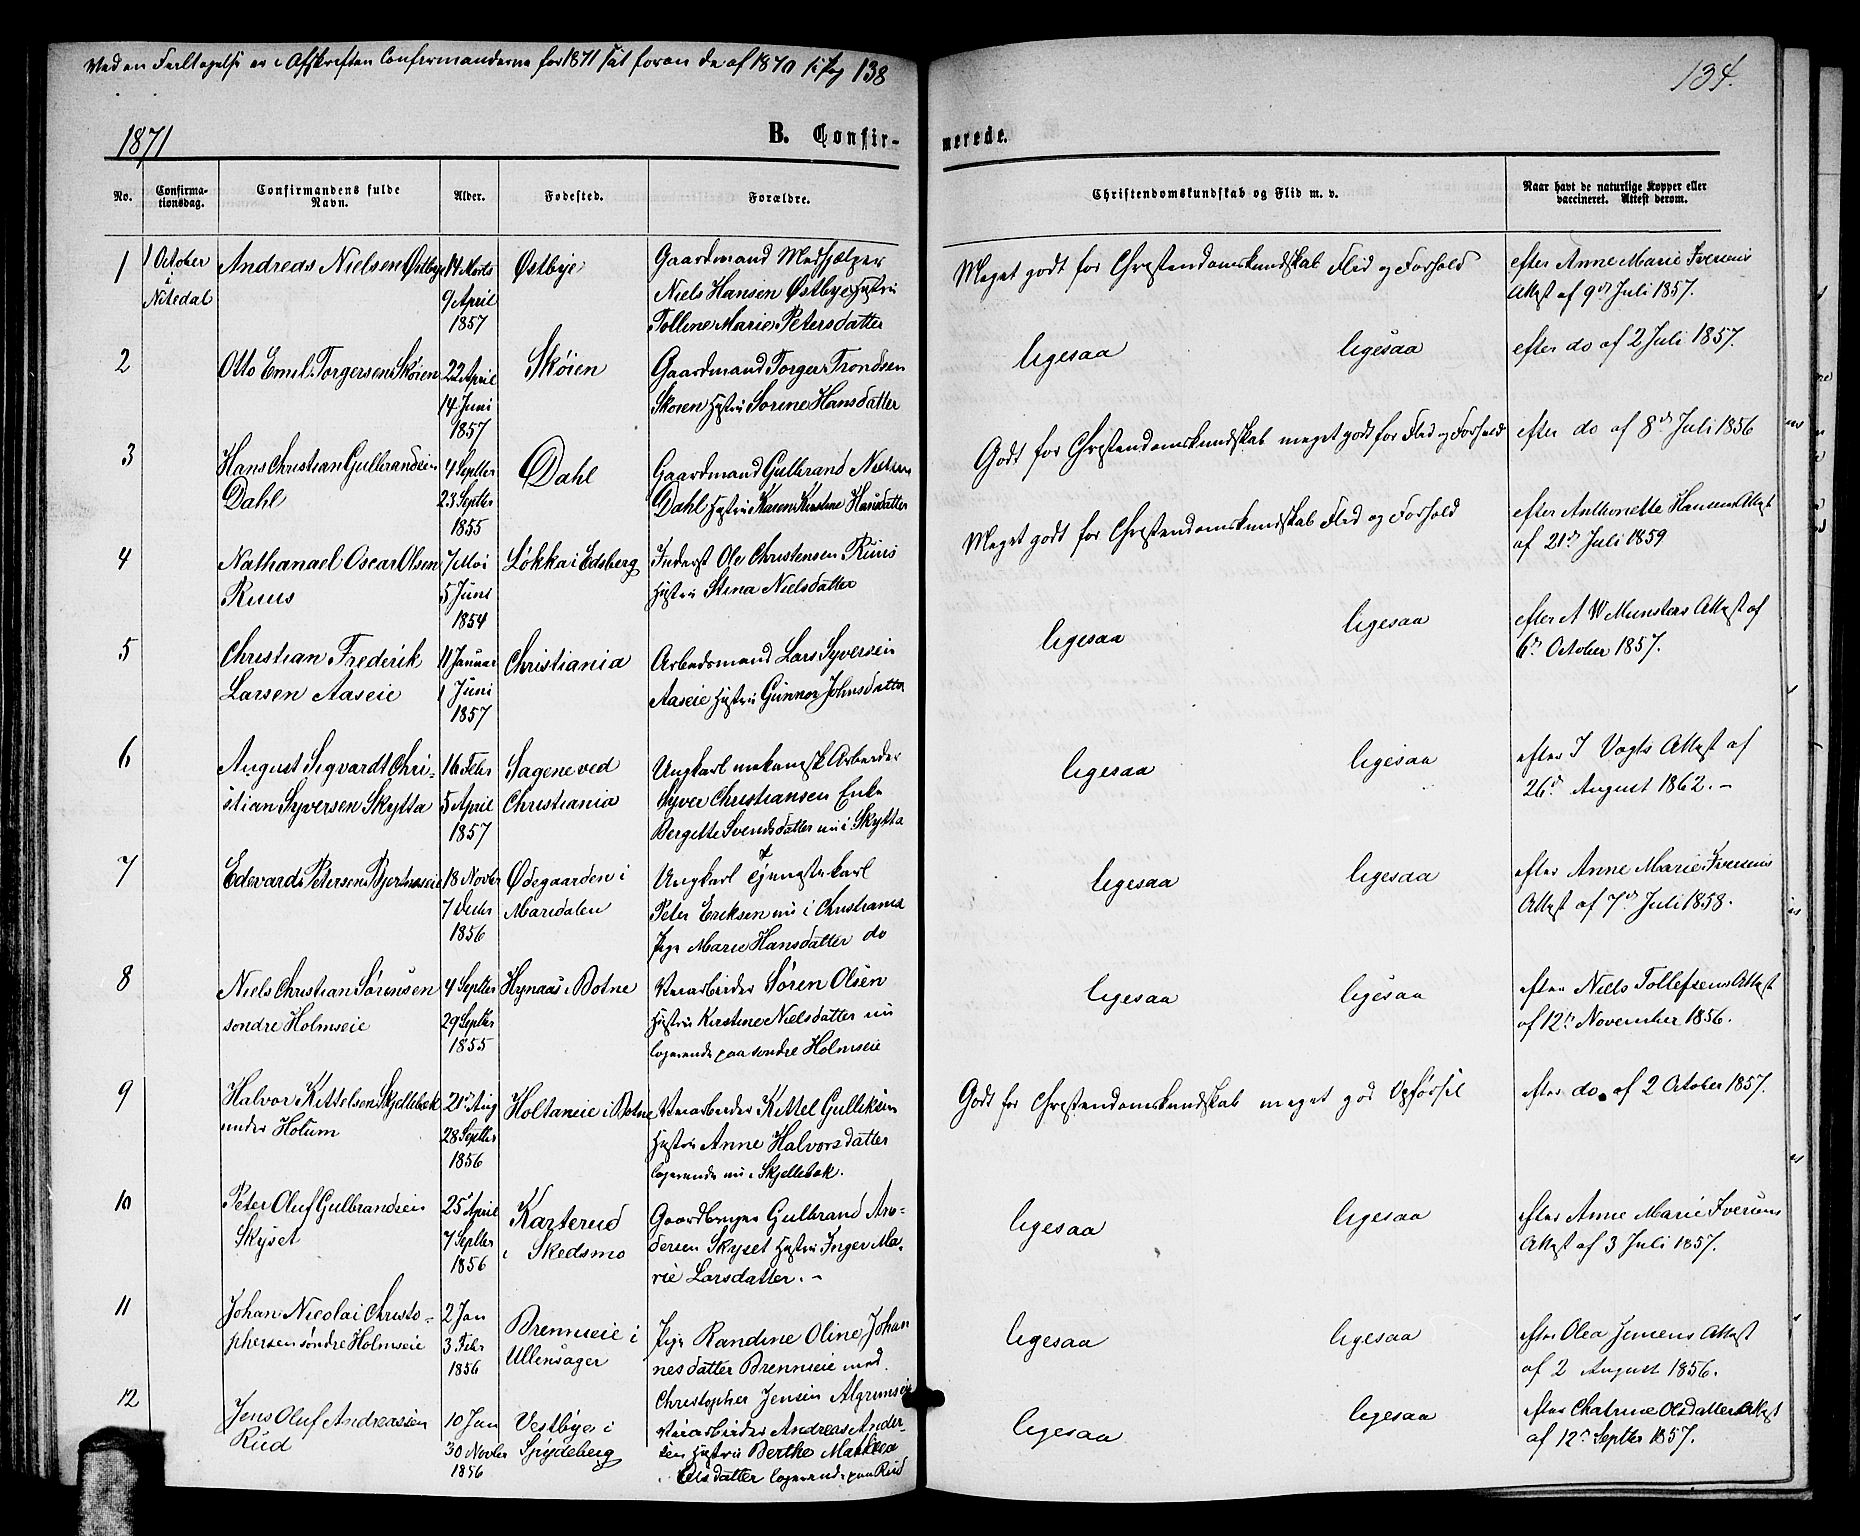 Ved en Feiltagelse er i Afskriften Confirmanderne for 1871 sat foran de af 1870 138
134.
1871
B. Confir-
merede.
No.
Confirma-
tionsdag.
Confirmandens fulde
Navn.
Alder.
Fødested.
Forældre.
Christendomskundskab og Flid m. v.
Naar havt de naturlige Kopper eller
vaccineret. Attest derom.
1
1 October
i
Nitedal
Andreas Nielsen Østbye
14 Marts
9 April
1857
Østbye
Gaardmand Medhjælper
Niels Hansen Østbye Hustru
Olline Marie Petersdatter
Meget godt for Christendomskundskab Flid og Forhold
efter Anne Marie Iversens
Attest af 9de Juli 1857.
2
Otto Emil Torgersen Skøien
22 April
14 Juni
1857
Skøien
Gaardmand Torger Trondsen
Skøien Hustru Sorine Hansdatter
ligesaa ligesaa
efter do af 2 Juli 1857.
3
Hans Christian Gulbrandsen
Dahl
4 Septbr
23 Septbr
1855
Dahl
Gaardmand Gulbrand Nielsen
Dahl Hustru Karen Kirstine Hansdatter
Godt for Christendomskundskab meget godt for Flid og Forhold
efter do af 8de Juli 1856
4
Nathanael Oscar Olsen
Ruus
7 Mai
5 Juni
1854
Løkka i Edsberg
Inderst Ole Christensen Ruus
Hustru Stina Nielsdatter
Meget godt for Christendomskundskab Flid og Forhold
efter Antonette Hansens Attest
af 21de Juli 1859
5
Christian Frederik
Larsen Aaseie
11 Januar
1 Juni
1857
Christiania
Arbeidsmand Lars Syversen
Aaseie Hustru Gunnor Johnsdatter
ligesaa ligesaa
efter A W Munsters Attest af
6te October 1857.
6
August Sigvardt Chri-
stian Syversen Skytta
16 Febr
5 April
1857
Sagene ved
Christiania
Ungkarl mekanisk Arbeider
Syver Christiansen Enke
Bergette Svendsdatter nu i Skytta
ligesaa ligesaa
efter I Vogts Attest af
26de August 1862. –
7
Edevard Petersen Bjertneseie
18 Novbr
7 Decbr
1856
Ødegaarden i
Maridalen
Ungkarl Tjenestekarl
Peter Eriksen nu i Christiania
Pige Marie Hansdatter do
ligesaa ligesaa
efter Anne Marie Iversens
Attest af 7de Juli 1858.
8
Niels Christian Sørensen
søndre Holmseie
4 Septbr
29 Septbr
1855
Hynaas i Botne
Veiarbeider Søren Olsen
Hustru Kirstine Nielsdatter nu
logerende paa søndre Holmseie
ligesaa ligesaa
efter Niels Tollefsens Attest
af 12te November 1856.
9
Halvor Kittelsen Skjellebæk
under Holum
21de Aug
28 Septbr
1856
Holtaneie i Botne
Veiarbeider Kittel Gulliksen
Hustru Anne Halvorsdatter
logerende nu i Skjellebæk.
Godt for Christendomskundskab meget god Opførsel
efter do. af 2 October 1857.
10
Peter Oluf Gulbrandsen
Skyset
25 April
7 Septbr
1856
Karterud
i Skedsmo
Gaardbruger Gulbrand An-
dersen Skyset Hustru Inger Ma-
rie Larsdatter. –
ligesaa ligesaa
efter Anne Marie Iversens
Attest af 3 Juli 1857.
11
Johan Nicolai Christo-
phersen søndre Holmseie
2 Jan
3 Febr
1856
Brenneie i
Ullensager
Pige Randine Oline Johan
nesdatter Brenneie med
Christopher Jensen
ligesaa ligesaa
efter Olea Jensens Attest
af 2 August 1856.
12
Jens Oluf Andreassen
Rud
10 Jan
30 Novbr
1856
Vestbye i
Spydeberg
Veiarbeider Andreas Ander-
sen Hustru Berthe Mathea
Olsdatter logerende paa Rud
ligesaa ligesaa
efter Chatrine Olsdatters Attest
af 12te Septbr 1857.